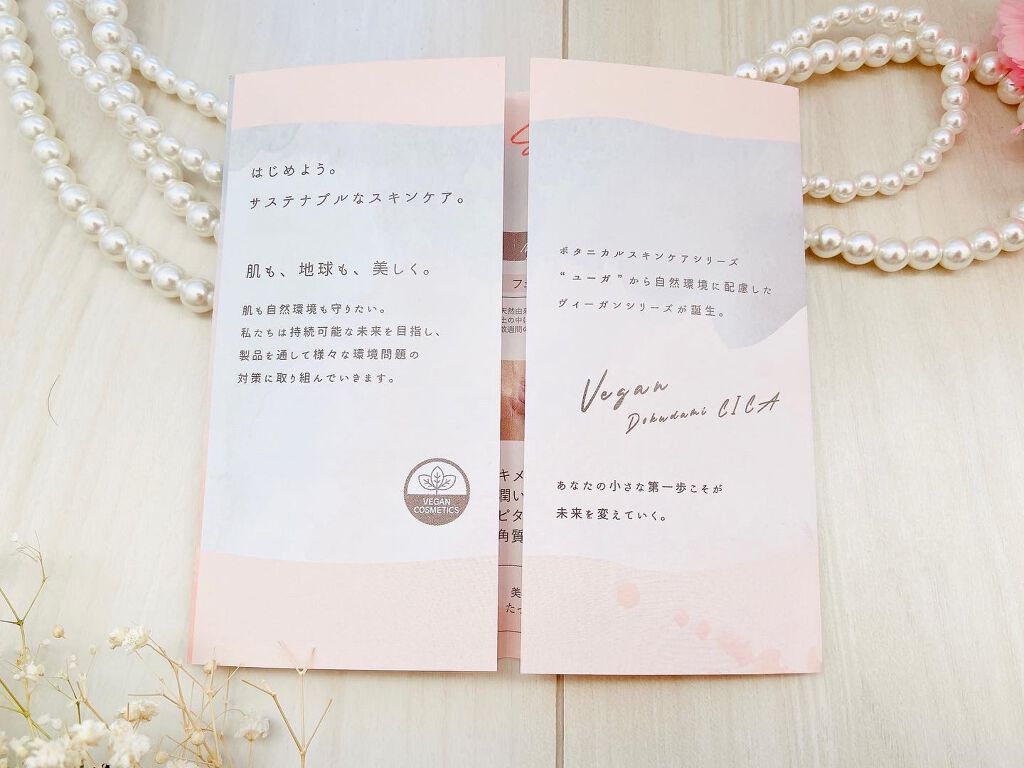 はじめよう。
サステナブルなスキンケア。
肌も、地球も、美しく。
肌も自然環境も守りたい。
私たちは持続可能な未来を目指し、
製品を通して様々な環境問題の
対策に取り組んでいきます。
VEGAN
COSMETICS
フェ
天然由来
土の中に
数週間の
キメ
潤い
ビタ
角質
美
たっ
ボタニカルスキンケアシリーズ
“ユーガ”から自然環境に配慮した
ヴィーガンシリーズが誕生。
Vegan
Dokudami CICA
あなたの小さな第一歩こそが
未来を変えていく。